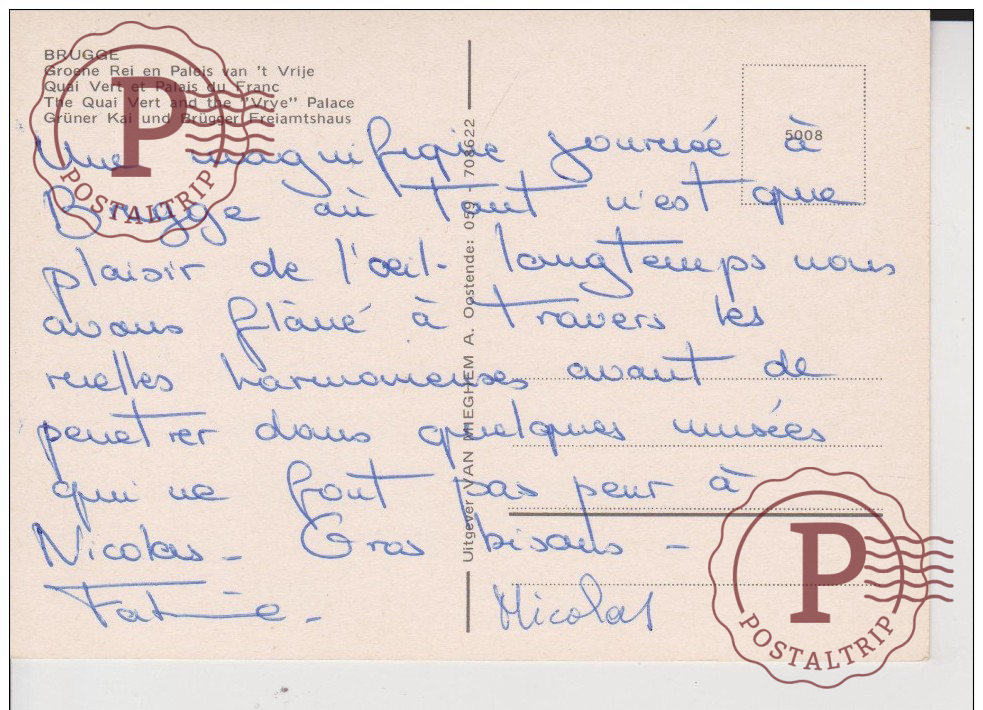 BRUGGE
Groene Rei en Paleis van 't Vrije
Quai Vert et Palais du Franc
The Quai Vert and the "Vrye" Palace
Grüner Kai und Brügger Freiamtshaus
5008
Uitgever VAN MIEGHEM A. Oostende: 059 - 708622
Une magnifique journée à
Brugge où tout n'est que
plaisir de l'œil. longtemps nous
avons flâné à travers les
ruelles harmonieuses avant de
penetrer dans quelques musées
qui ne font pas peur à
Nicolas - Gros bisous -
Nicolas
P
POSTALTRIP
P
POSTALTRIP